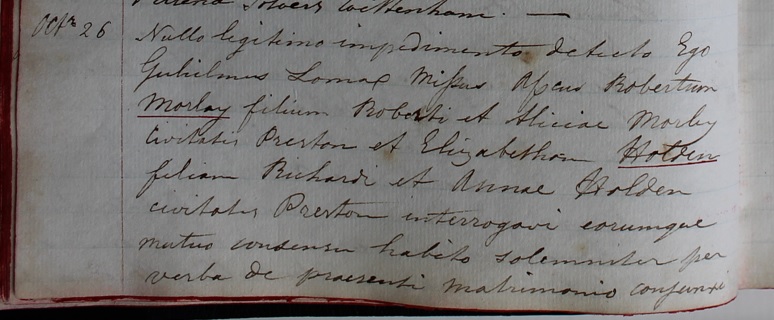 Solvers Cottenham. —
Octr 26 Nullo legitimo impedimento detecto Ego
Gulielmus Lomax Missus Apcus Robertum
Morley filium Roberti et Aliciae Morley
Civitatis Preston et Elizabetham Holden
filiam Richardi et Annae Holden
civitatis Preston interrogavi eorumque
mutuo consensu habito solemniter per
verba de praesenti matrimonio conjunxi